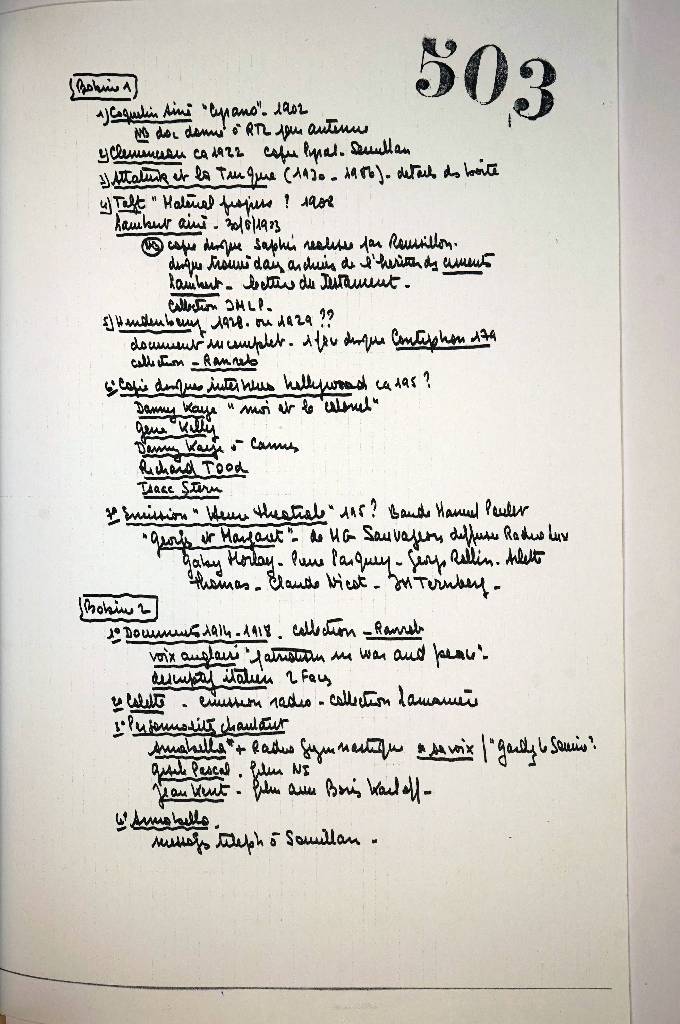 503
Bobine 1
1) Coquelin Ainé "Cyrano". 1902
NB doc donné à RTL pour antenne
2) Clemenceau ca 1922 copie Pyral. Sevillan
3) Attaturk et la Turquie (1930 - 1986). details ds boite
4) Taft " Matérial progress ? 1908
Lambert ainé - 30/8/1903
NB copie disque Saphir realisée par Roussillon.
disque trouvé dans archives de l'héritier des ciments
Lambert - lecture du Testament -
Collection JMLP.
5) Hendenbourg 1928. ou 1929 ??
document incomplet. 1 face disque Contiphon 179
collection - Ranreb
6° Copie disques interviews hollywood ca 195 ?
Danny Kaye " moi et le Colonel"
Gene Kelly
Danny Kaye à Cannes
Richard Tood
Isaac Stern
7° Emission " Heure théatrale" 195 ? Bande Manuel Poulet
"Georges et Margaret" - de MG Sauvajon diffusée Radio Lux
Gaby Morlay - Pierre Pasquey - Georges Rollin. Arlette
Thomas - Claude Nicot - JM Ternberg -
Bobine 2
1° Documents 1914-1918. collection - Ranreb
voix anglaise "patriotism in war and peace" -
descriptif italien 2 Faces
2° Colette - emission radio - collection Lamarnière
3° Personnalités chantant
Annabella + Radio Gymnastique sa voix
Gisele Pascal. film NS
Jean Kent - film avec Boris Karloff -
4° Annabella
message téleph à Sevillan -